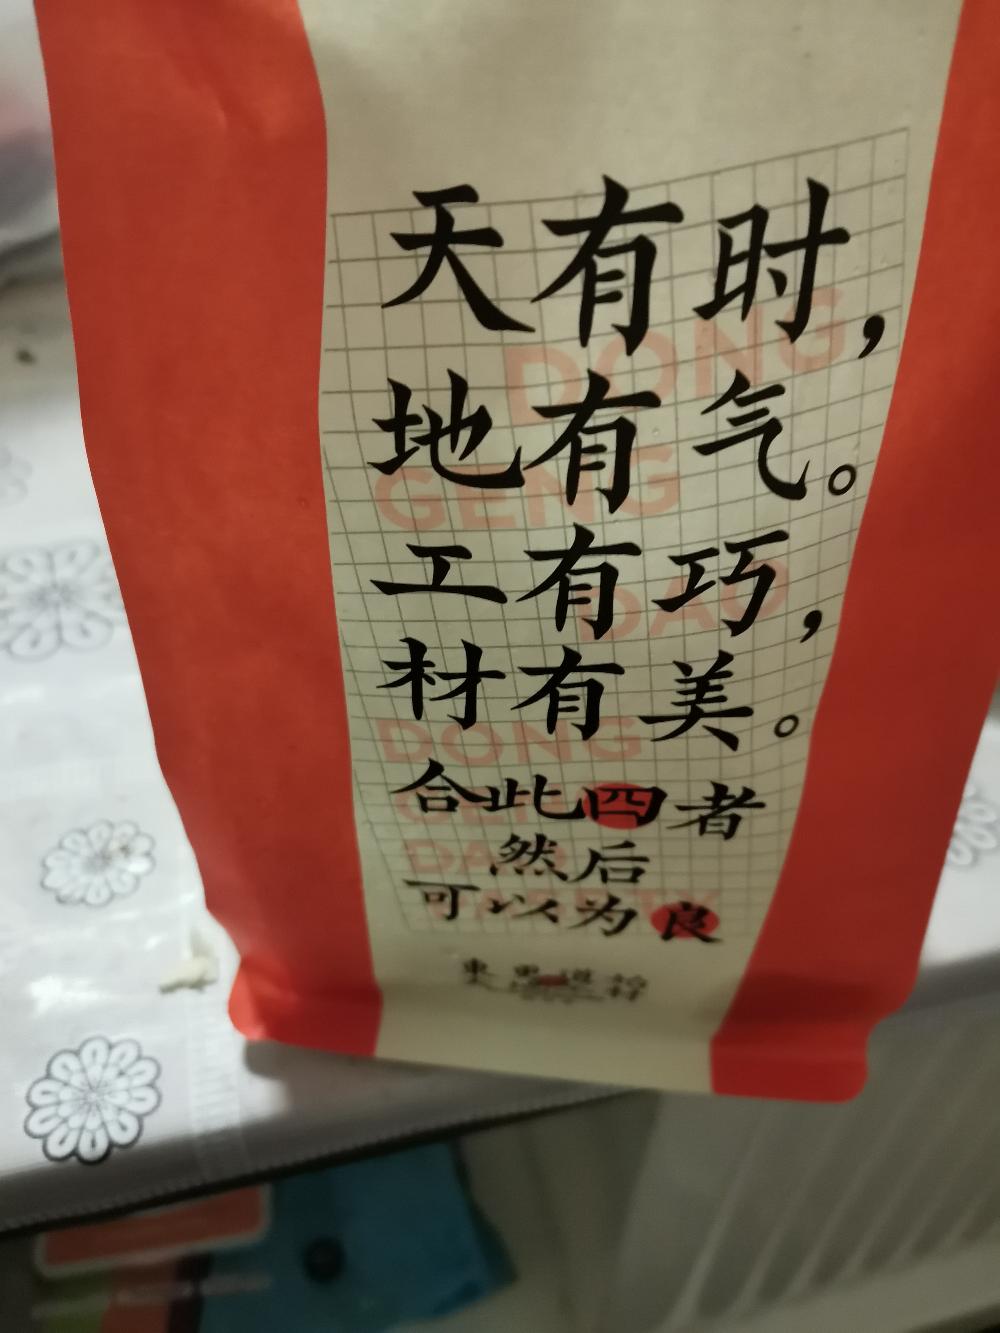 天有时，
地有气。
工有巧，
材有美。
合此四者
然后
可以为良
DONG
GENG
DAO
DONG